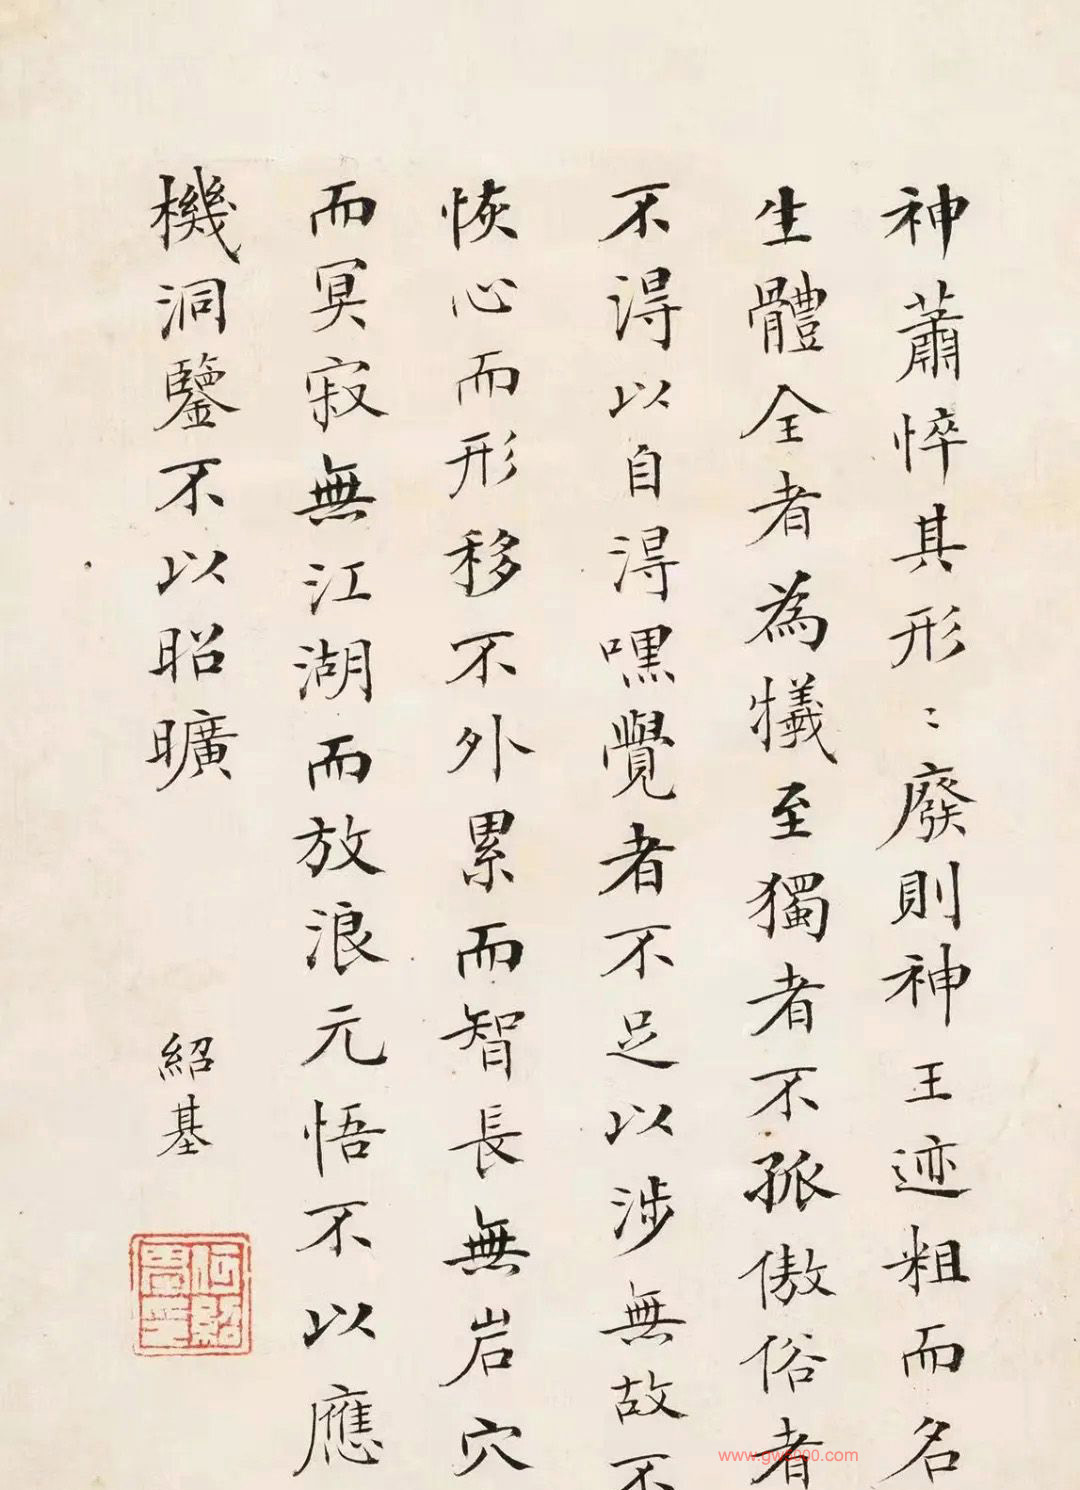 神蕭悴其形〻廢則神王迹粗而名
生體全者為犠至獨者不孤傲俗者
不淂以自淂嘿覺者不足以涉無故不
恢心而形移不外累而智長無岩穴
而冥寂無江湖而放浪元悟不以應
機洞鑒不以昭曠
紹基
www.gw5000.com